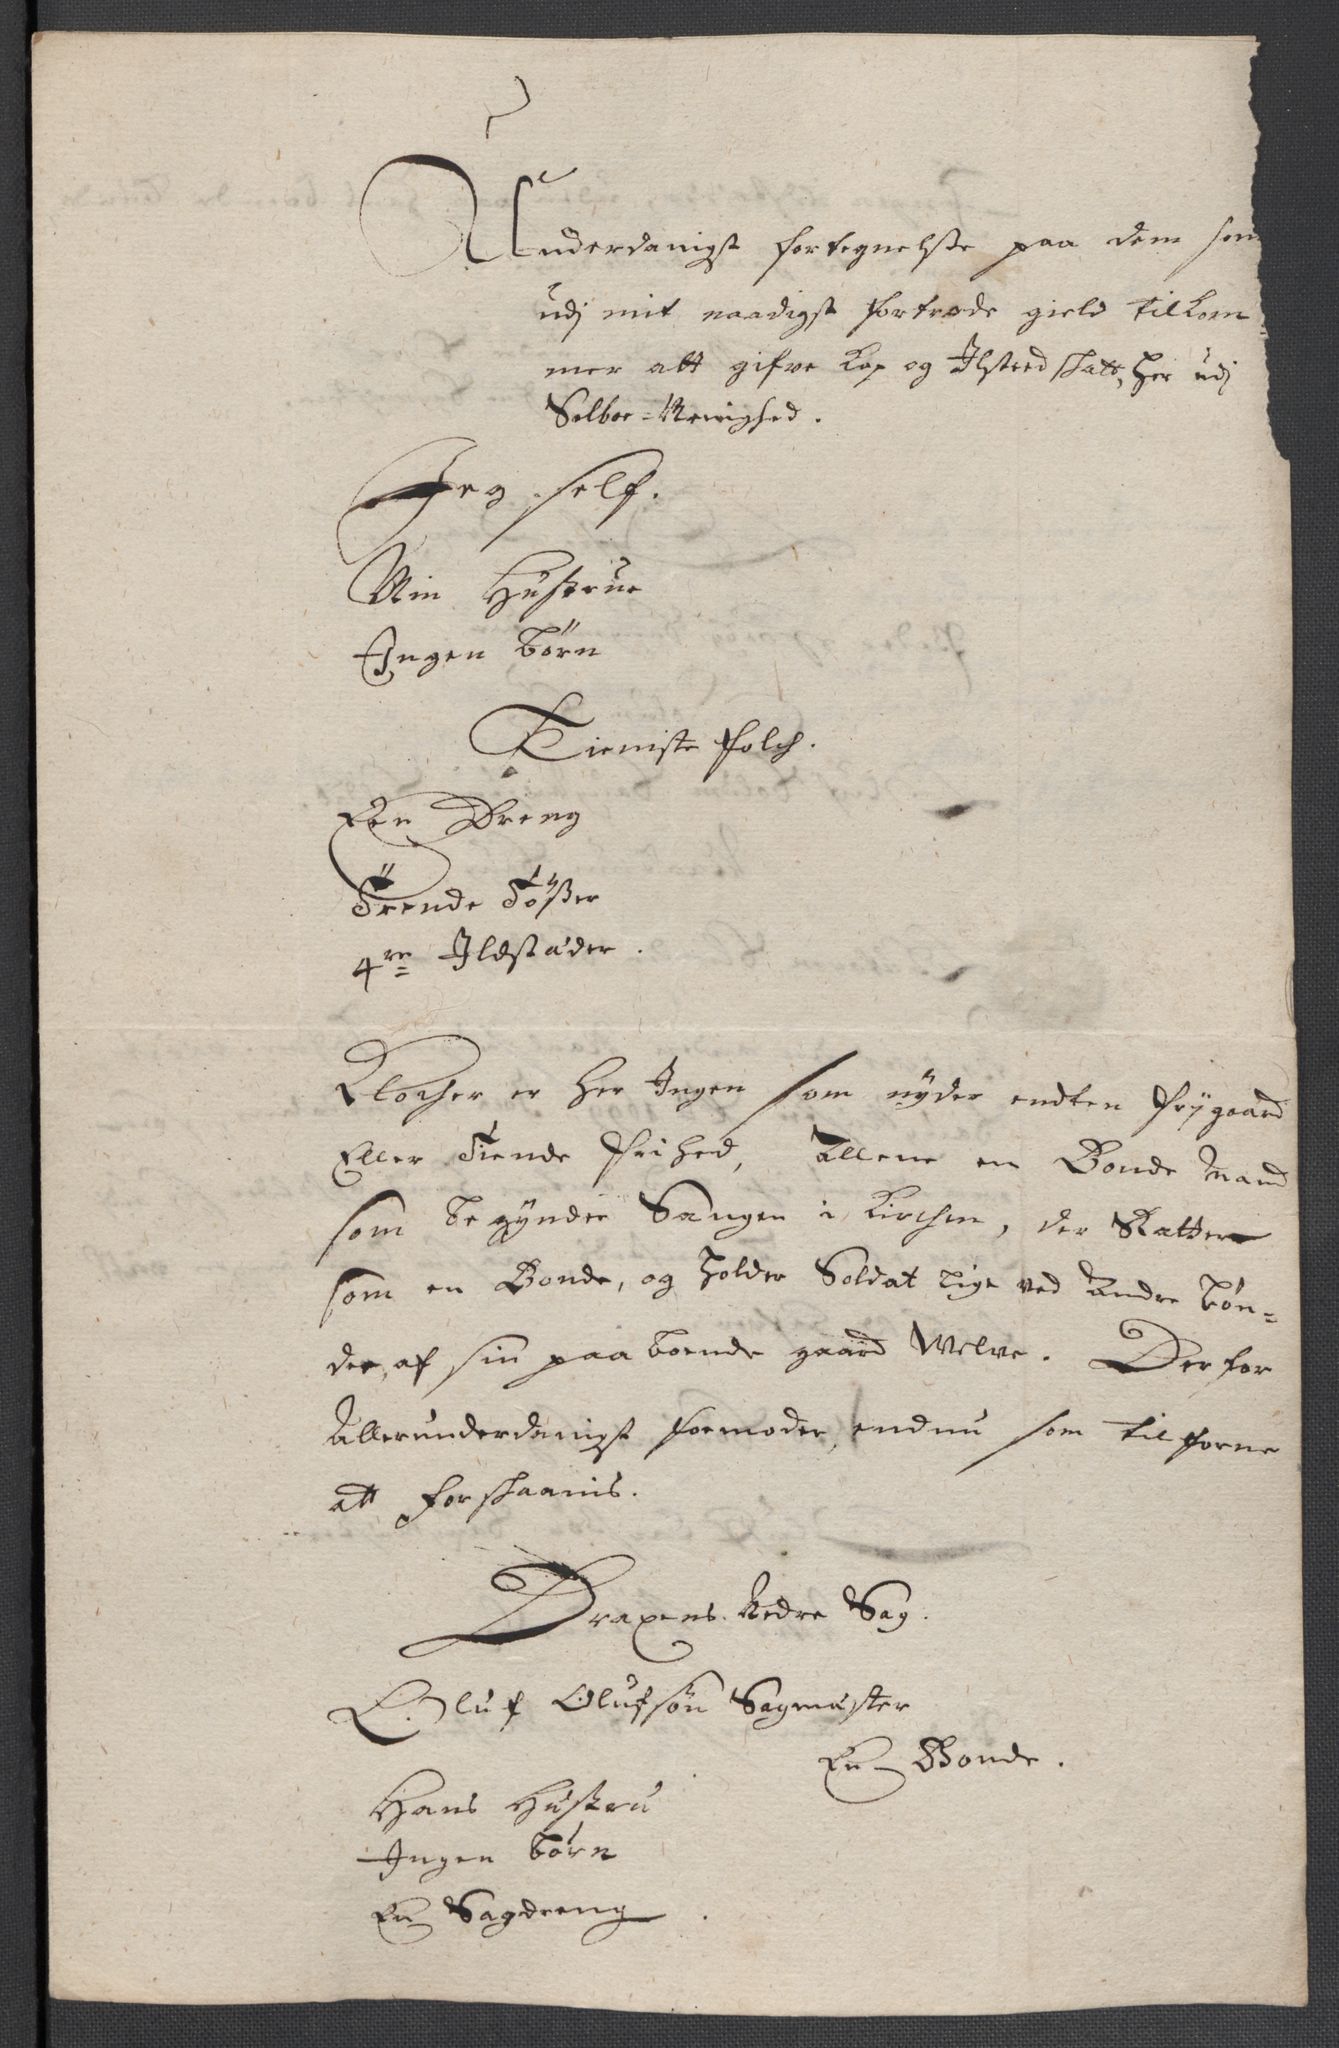 Underdanigst fortegnelsse paa dem som
udj mit naadigst fortrode gield tilkom¬
mer att gifve Kop og Ilsted skatt, her udj
Selboe=Menighed.
Jeg self.
Min Hustrue
Ingen børn
Tieniste folch.
Een Dreng
Trende Tøßer
4re Ildstæder.
Klocher er her Ingen som nyder endten frijgaard
Eller Tiende frihed, Allene en Bonde Mand
som begynder Sangen i Kirchen, der Skatter
som en Bonde, og holder Soldat lige ved Andre bøn=
der, af sin paaboende gaard Welve. Derfor
Allerunderdanigst formoder, endnu som tilforne
att forskaanis.
Draxens Nedre Sag.
Oluf Olufsøn Sagmester
En Bonde.
Hans Hustru
Ingen børn
En Sagdreng.